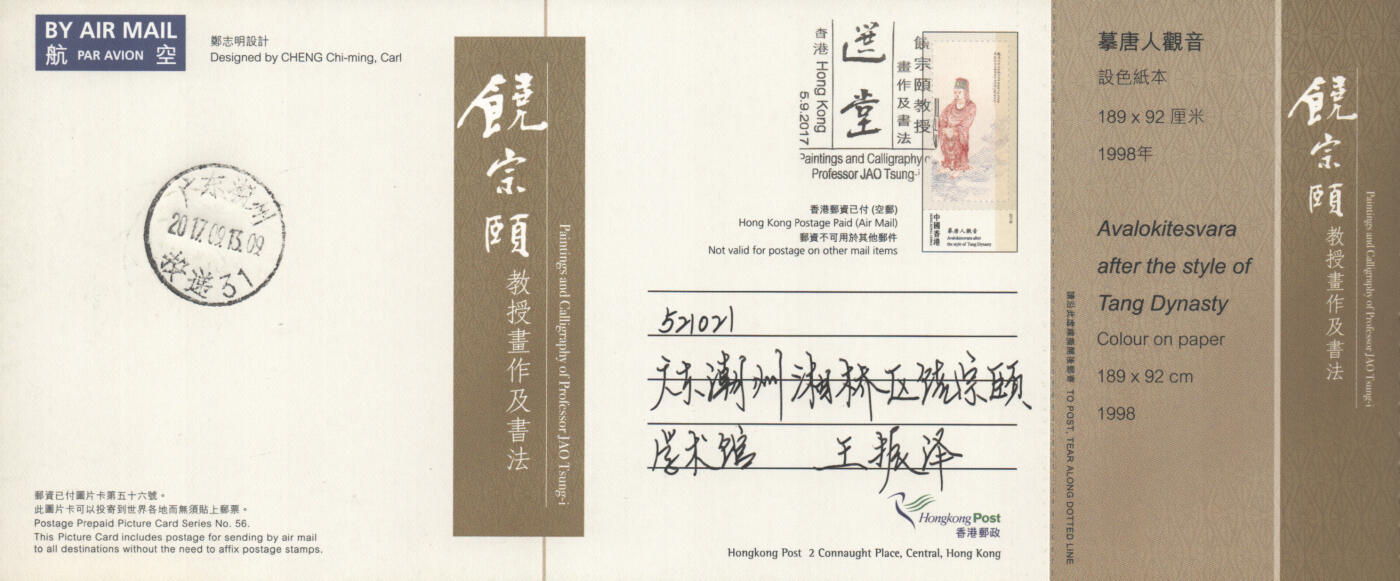 BY AIR MAIL
航 PAR AVION 空
鄭志明設計
Designed by CHENG Chi-ming, Carl
广东潮州
2017.09.13.09
投递31
郵資已付圖片卡第五十六號。
此圖片卡可以投寄到世界各地而無須貼上郵票。
Postage Prepaid Picture Card Series No. 56.
This Picture Card includes postage for sending by air mail
to all destinations without the need to affix postage stamps.
饒宗頤教授畫作及書法
Paintings and Calligraphy of Professor JAO Tsung-i
香港 Hong Kong
5.9.2017
選堂
饒宗頤教授
畫作及書法
Paintings and Calligraphy o
Professor JAO Tsung-i
中國香港
摹唐人觀音
Avalokitesvara after
the style of Tang Dynasty
香港郵資已付 (空郵)
Hong Kong Postage Paid (Air Mail)
郵資不可用於其他郵件
Not valid for postage on other mail items
521021
广东潮州湘桥区饶宗颐
学术馆 王振泽
Hongkong Post
香港郵政
Hongkong Post 2 Connaught Place, Central, Hong Kong
請沿此虛線撕開後郵寄 TO POST, TEAR ALONG DOTTED LINE
摹唐人觀音
設色紙本
189 x 92 厘米
1998年
Avalokitesvara
after the style of
Tang Dynasty
Colour on paper
189 x 92 cm
1998
饒宗頤教授畫作及書法
Paintings and Calligraphy of Professor JAO Tsung-i